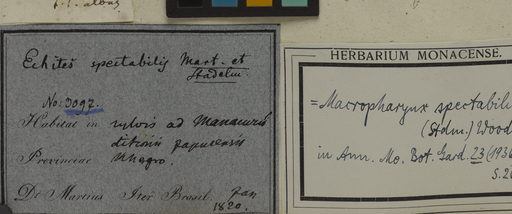 Echites spectabilis Mart. et
Stadelm
No. 3097.
Habitat in sylvis ad Manacurú
ditionis japurensis
Provinciae Rhegro.
Dr. Martius Iter Brasil. Jan
1820.
HERBARIUM MONACENSE.
= Macropharynx spectabili
(Stdm.) Wood
in Ann. Mo. Bot. Gard. 23 (1936
S. 26